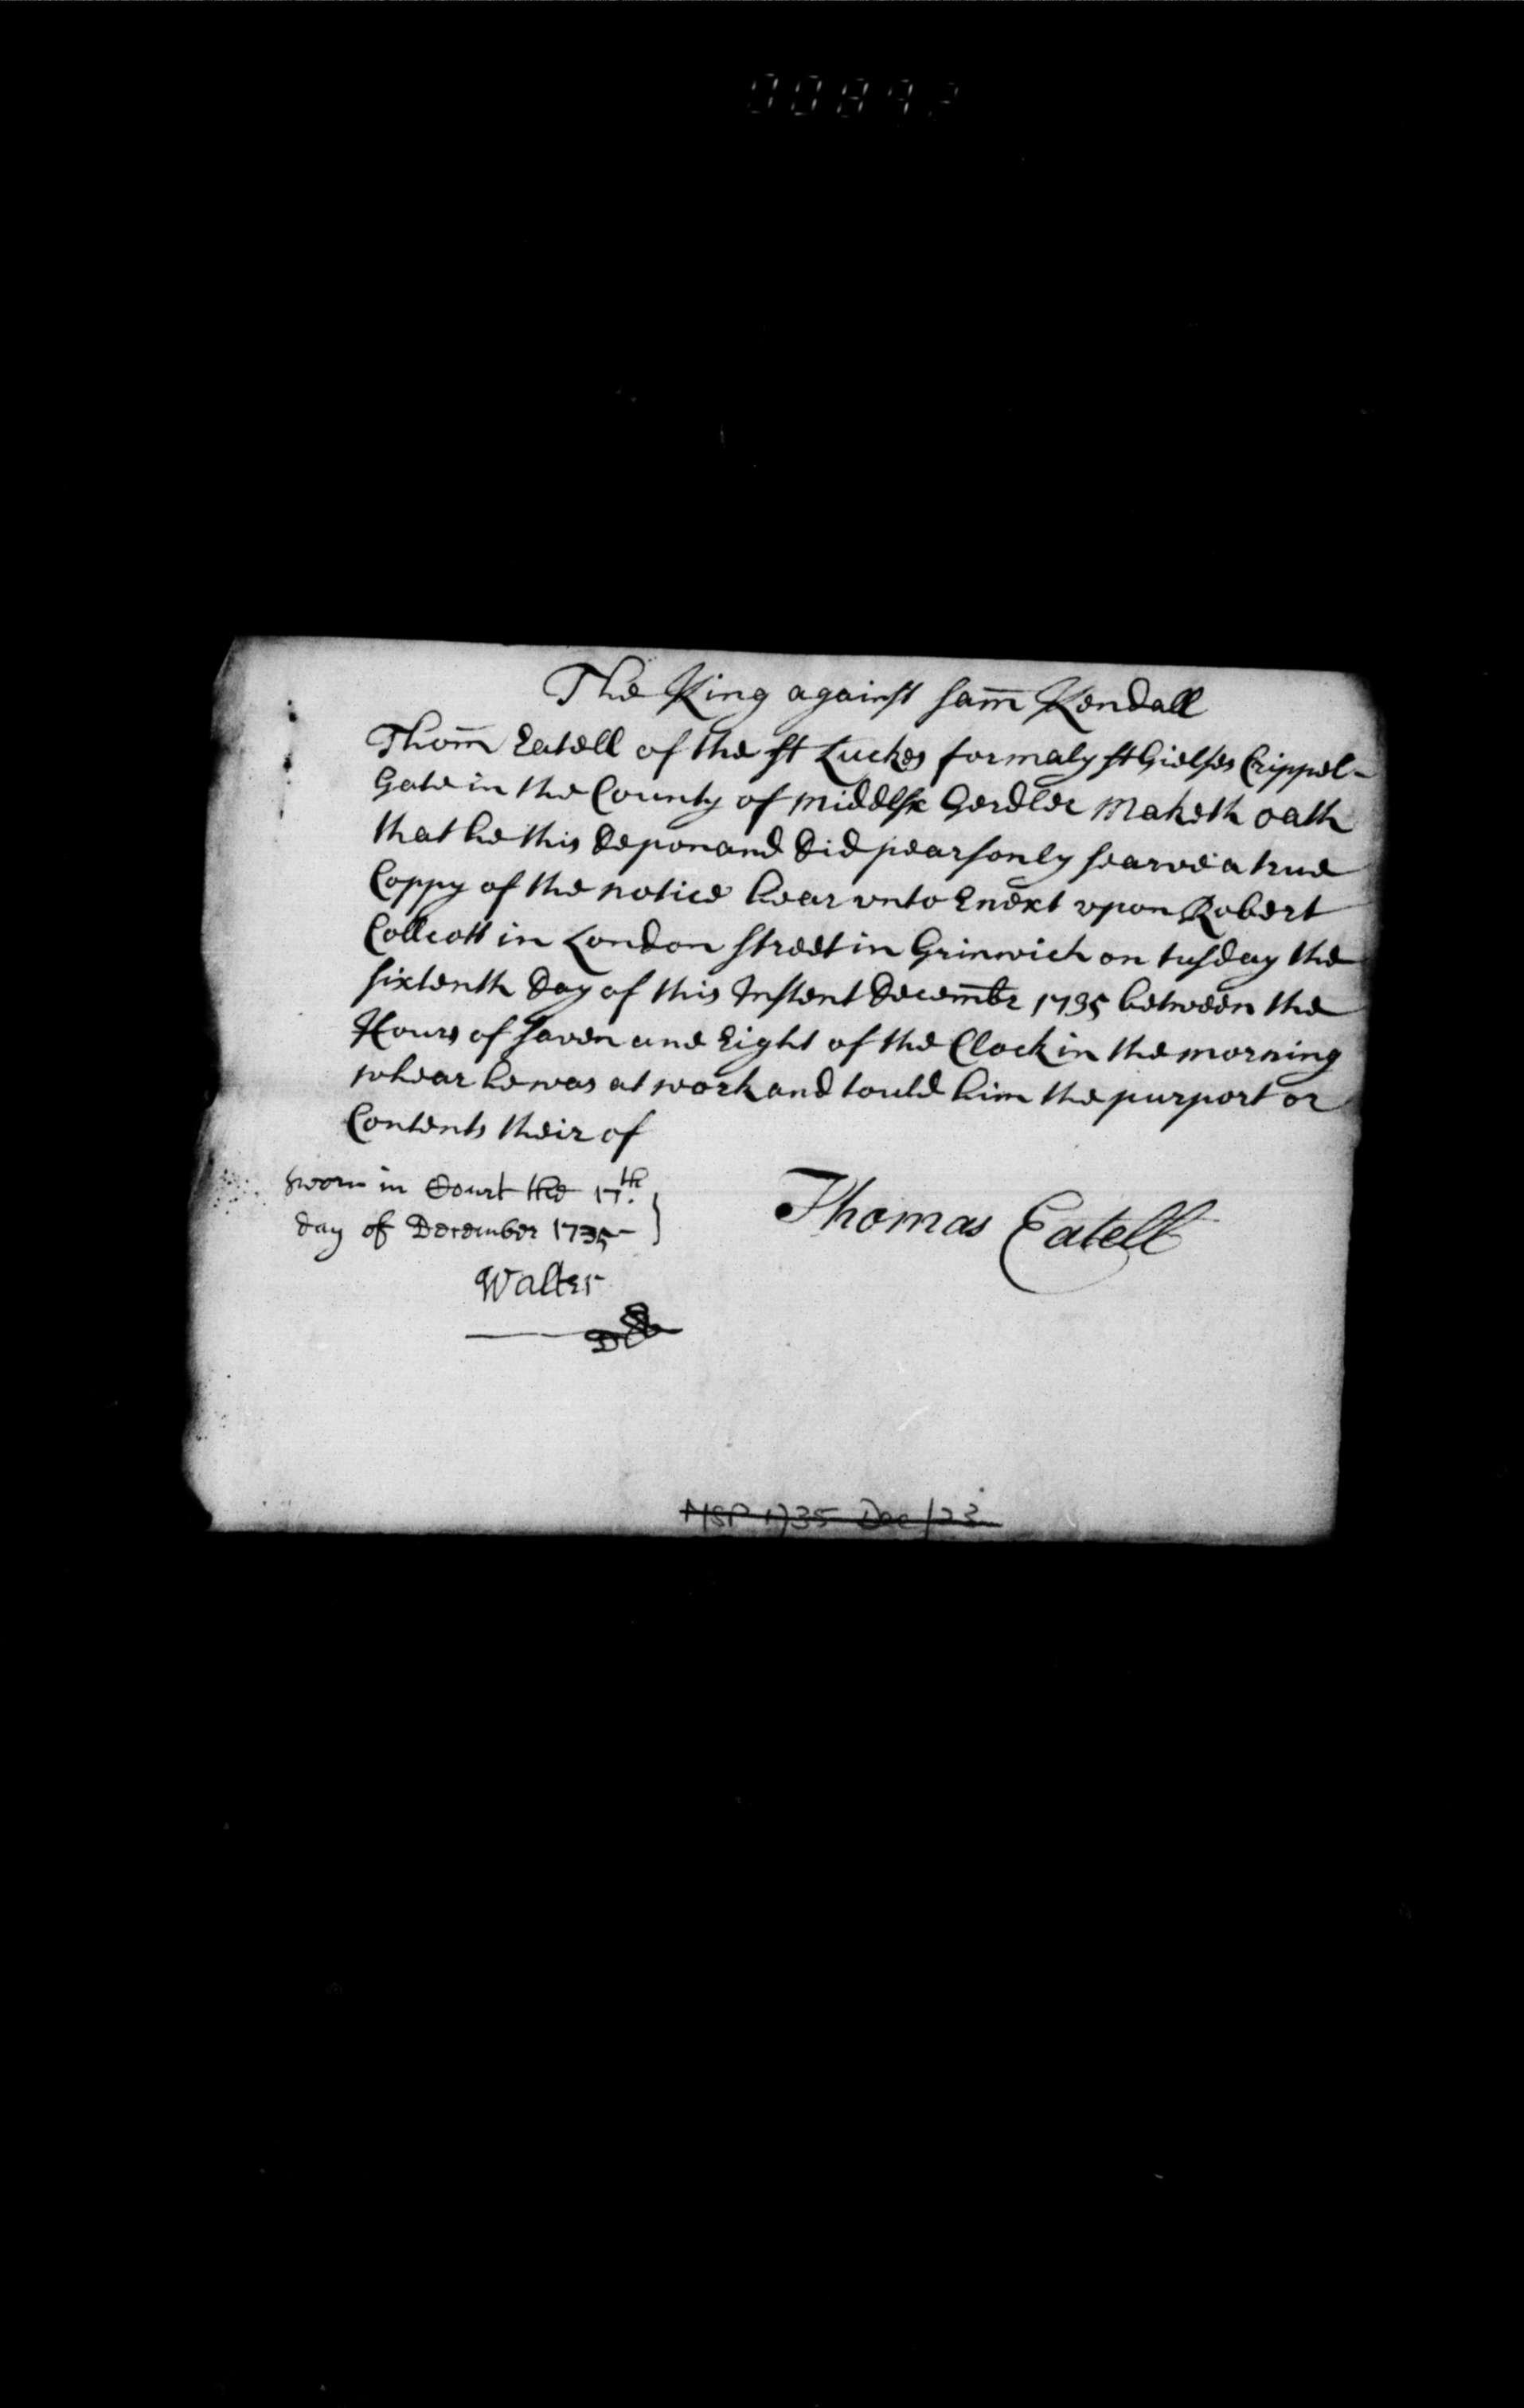 The King against Sam̄ Kendall
Thom̄ Eatell of the St Luckes formaly St Gielses Crippel-
Gate in the County of Middlsx Gerdler Maketh oath
that he this Deponand Did pearsonly searve a true
Coppy of the notice hear unto Enext upon Robert
Collcott in London Street in Grinwich on tusday the
sixtenth Day of this Instent Decem̄br 1735 between the
Hours of Saven and Eight of the Clock in the morning
whear he was at work and tould him the purport or
Contents their of
Sworn in Court the 17th.
day of December 1735
Thomas Eatell
Walter
MSP 1735 Dec/23